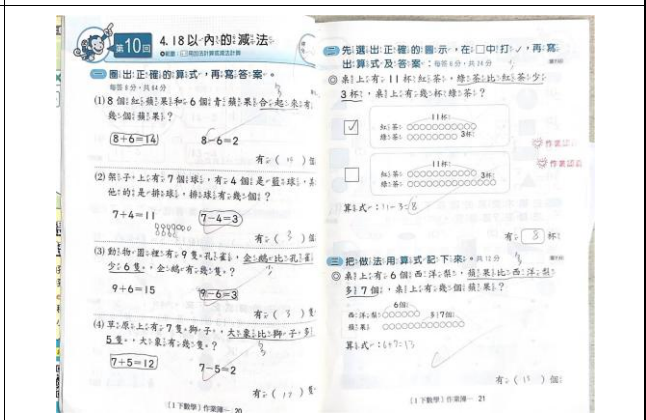 第10回
4.18以內的減法
一 圈出正確的算式，再寫答案。
每答8分，共64分
(1) 8個紅蘋果和6個青蘋果合起來有
幾個蘋果？
8+6=14 8-6=2
有( 14 )個
(2) 架子上有7個球，有4個是籃球，其
他的是排球，排球有幾個？
7+4=11 7-4=3
有( 3 )個
(3) 動物園裡有9隻孔雀，企鵝比孔雀
少6隻，企鵝有幾隻？
9+6=15 9-6=3
有( 3 )隻
(4) 草原上有7隻獅子，大象比獅子多
5隻，大象有幾隻？
7+5=12 7-5=2
有( 12 )隻
【1下數學】作業簿— 20
二 先選出正確的圖示，在□中打✓，再寫
出算式及答案。每答8分，共24分
◎桌上有11杯紅茶，綠茶比紅茶少
3杯，桌上有幾杯綠茶？
11杯
✓ 紅茶
綠茶 3杯
11杯
紅茶 3杯
綠茶
算式：11-3=8
有 8 杯
三 把做法用算式記下來。共12分
◎桌上有6個西洋梨，蘋果比西洋梨
多7個，桌上有幾個蘋果？
6個
西洋梨 多7個
蘋果
算式：6+7=13
有( 13 )個
【1下數學】作業簿— 21